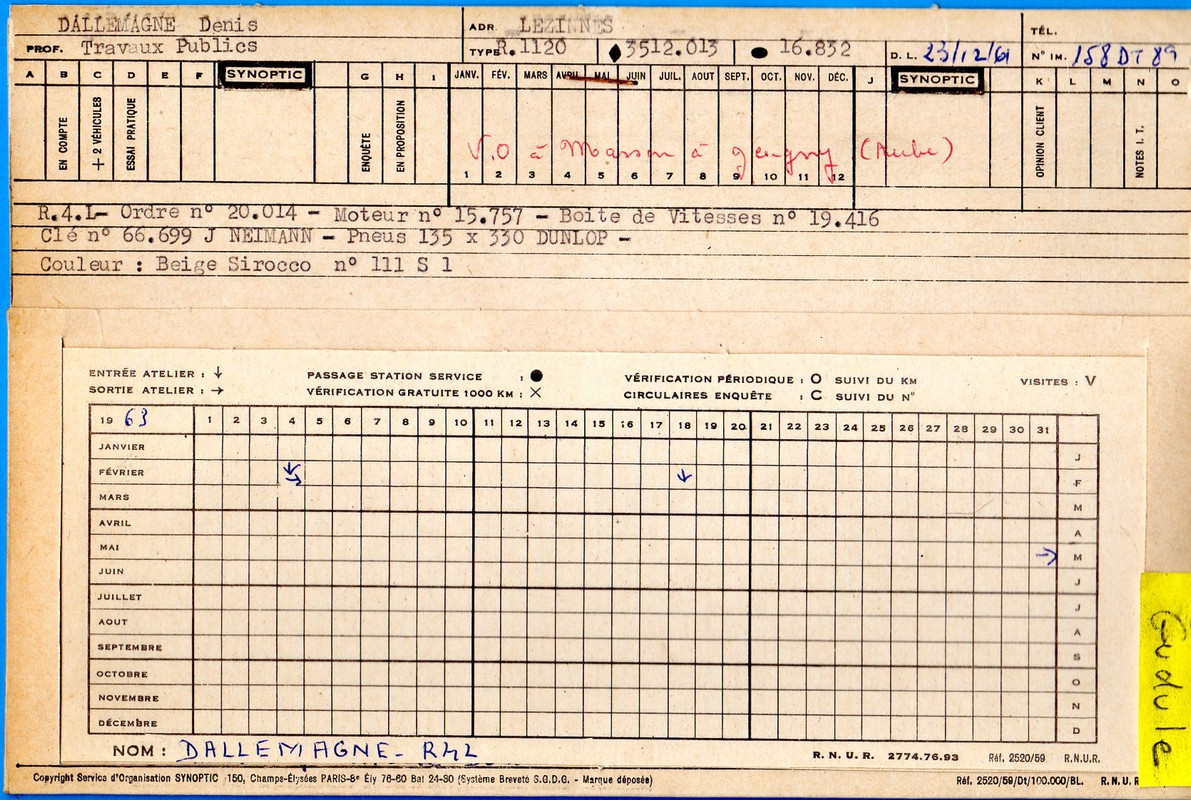 DALLEMAGNE Denis
ADR. LEZINNES
TÉL.
PROF. Travaux Publics
TYPE R.1120 ♦ 3512.013 ● 16.832
D. L. 23/12/61
N° IM. 158 DT 89
A B C D E F SYNOPTIC G H I JANV. FÉV. MARS AVRIL MAI JUIN JUIL. AOUT SEPT. OCT. NOV. DÉC. J SYNOPTIC K L M N O
EN COMPTE
+ 2 VÉHICULES
ESSAI PRATIQUE
ENQUÊTE
EN PROPOSITION
OPINION CLIENT
NOTES I. T.
V.O à Masson à (Aube)
1 2 3 4 5 6 7 8 9 10 11 12
R.4.L- Ordre n° 20.014 - Moteur n° 15.757 - Boite de Vitesses n° 19.416
Clé n° 66.699 J NEIMANN - Pneus 135 x 330 DUNLOP -
Couleur : Beige Sirocco n° 111 S 1
ENTRÉE ATELIER : ↓ PASSAGE STATION SERVICE : ● VÉRIFICATION PÉRIODIQUE : O SUIVI DU KM VISITES : V
SORTIE ATELIER : → VÉRIFICATION GRATUITE 1000 KM : X CIRCULAIRES ENQUÊTE : C SUIVI DU N°
19 63 1 2 3 4 5 6 7 8 9 10 11 12 13 14 15 16 17 18 19 20 21 22 23 24 25 26 27 28 29 30 31
JANVIER J
FÉVRIER ↓ → ↓ F
MARS M
AVRIL A
MAI → M
JUIN J
JUILLET J
AOUT A
SEPTEMBRE S
OCTOBRE O
NOVEMBRE N
DÉCEMBRE D
NOM : DALLEMAGNE - R4L
R. N. U. R. 2774.76.93 Réf. 2520/59 R.N.U.R.
Copyright Service d'Organisation SYNOPTIC 150, Champs-Élysées PARIS-8e Ély 76-60 Bal 24-80 (Système Breveté S.G.D.G. - Marque déposée)
Réf. 2520/59/Dt/100.000/BL. R. N. U. R
Gudule